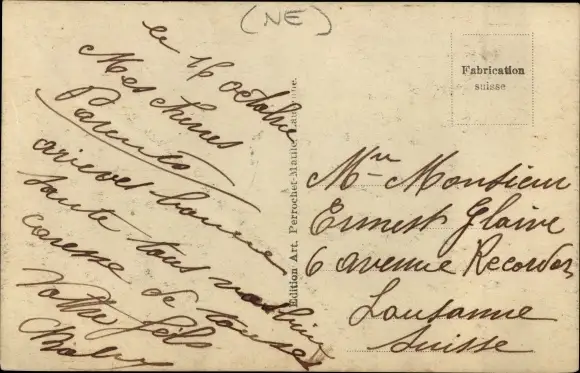 (NE)
le 16 octobre
Mes chères
Parents
ariver bonne
sante tous
caresse de tous
Votre fils
Edition Art. Perrochet-Matile, Lausanne.
Fabrication
suisse
Monsieur
Ernest Glaive
6 avenue Recordon
Lausanne
Suisse